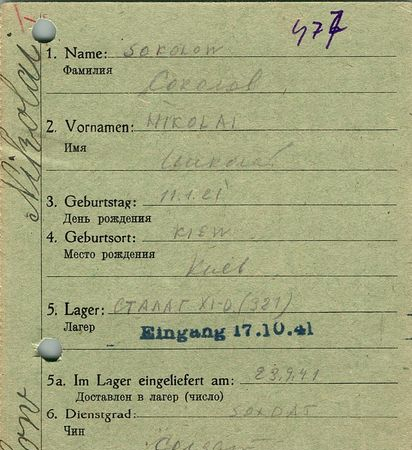 477
1. Name: SOKOLOW
Фамилия
Соколов
2. Vornamen: NIKOLAI
Имя
Николай
3. Geburtstag: 11.1.21
День рождения
4. Geburtsort: KIEW
Место рождения
Киев
5. Lager: СТАЛАГ XI-D (321)
Лагер
Eingang 17.10.41
5a. Im Lager eingeliefert am: 23.9.41
Доставлен в лагер (число)
6. Dienstgrad: SOLDAT
Чин
Солдат
Nikolai